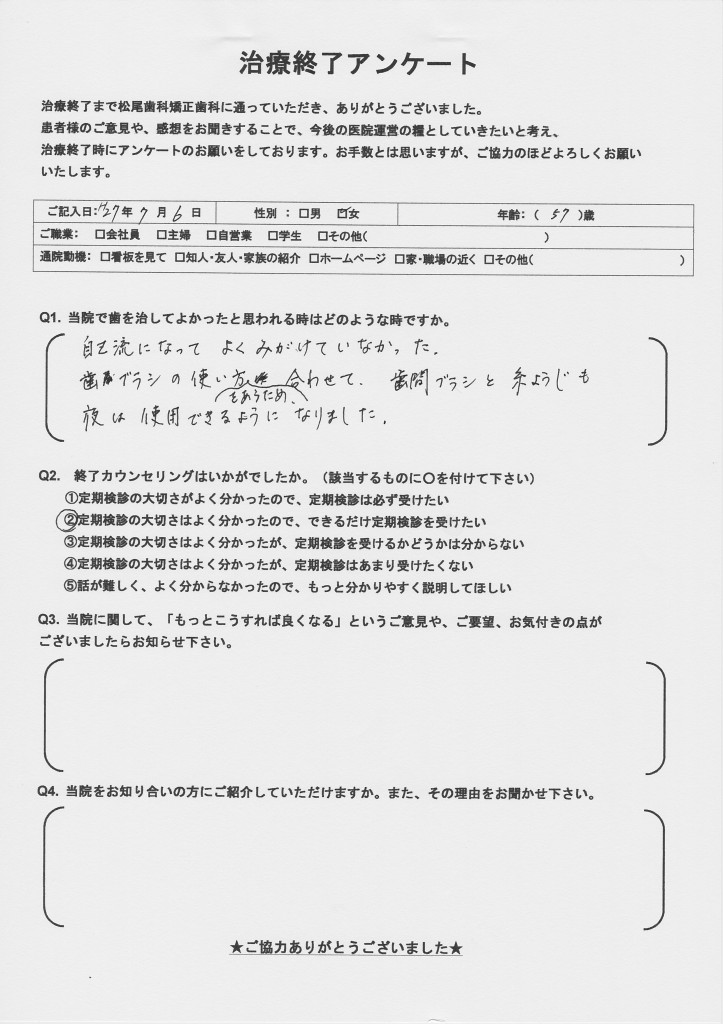 治療終了アンケート
治療終了まで松尾歯科矯正歯科に通っていただき、ありがとうございました。
患者様のご意見や、感想をお聞きすることで、今後の医院運営の糧としていきたいと考え、
治療終了時にアンケートのお願いをしております。お手数とは思いますが、ご協力のほどよろしくお願い
いたします。
ご記入日:H27年 7月 6日 性別 : □男 ☑女 年齢:( 57 )歳
ご職業: □会社員 □主婦 □自営業 □学生 □その他( )
通院動機: □看板を見て □知人・友人・家族の紹介 □ホームページ □家・職場の近く □その他( )
Q1. 当院で歯を治してよかったと思われる時はどのような時ですか。
自己流になって よくみがけていなかった.
歯ブラシの使い方 合わせて. 歯間ブラシと糸ようじも
をあらため、
夜は使用できるようになりました.
Q2. 終了カウンセリングはいかがでしたか。(該当するものに〇を付けて下さい)
①定期検診の大切さがよく分かったので、定期検診は必ず受けたい
②定期検診の大切さはよく分かったので、できるだけ定期検診を受けたい
③定期検診の大切さはよく分かったが、定期検診を受けるかどうかは分からない
④定期検診の大切さはよく分かったが、定期検診はあまり受けたくない
⑤話が難しく、よく分からなかったので、もっと分かりやすく説明してほしい
Q3. 当院に関して、「もっとこうすれば良くなる」というご意見や、ご要望、お気付きの点が
ございましたらお知らせ下さい。
Q4. 当院をお知り合いの方にご紹介していただけますか。また、その理由をお聞かせ下さい。
★ご協力ありがとうございました★